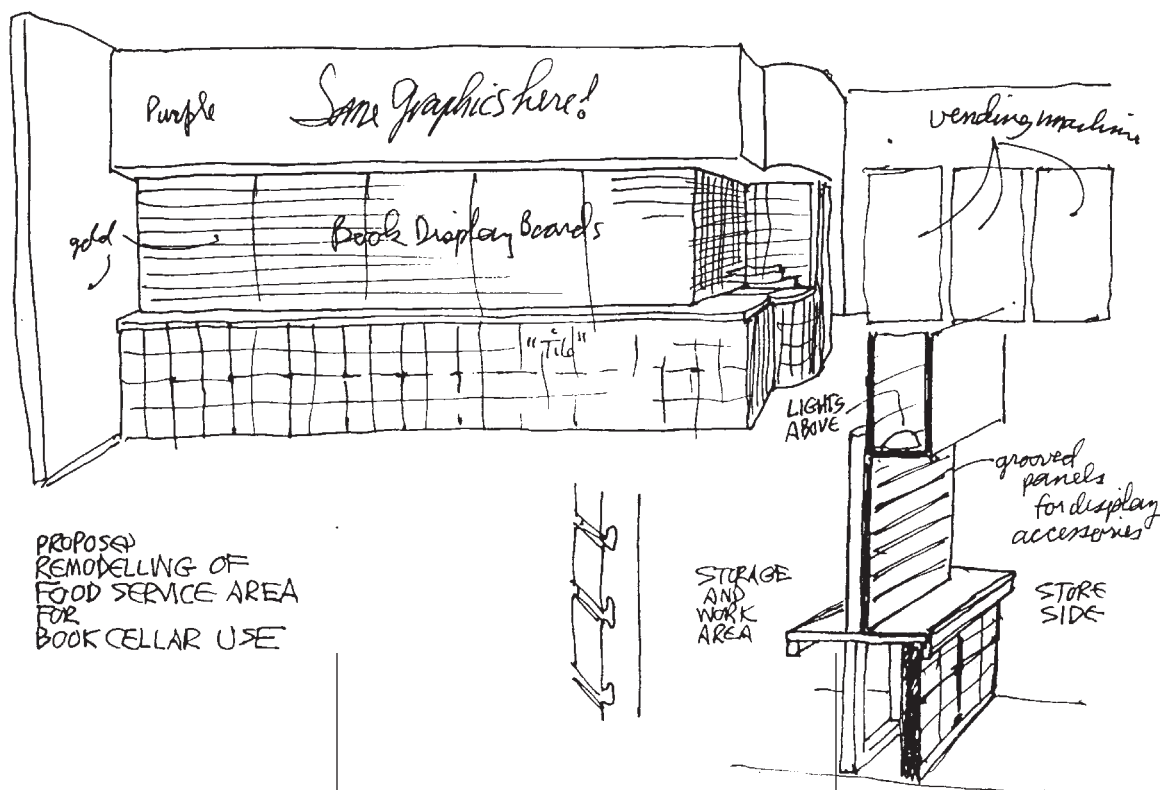 Purple
Some Graphics here!
vending machine
gold
Book Display Boards
"Tile"
LIGHTS
ABOVE
grooved
panels
for display
accessories
PROPOSED
REMODELLING OF
FOOD SERVICE AREA
FOR
BOOK CELLAR USE
STORAGE
AND
WORK
AREA
STORE
SIDE